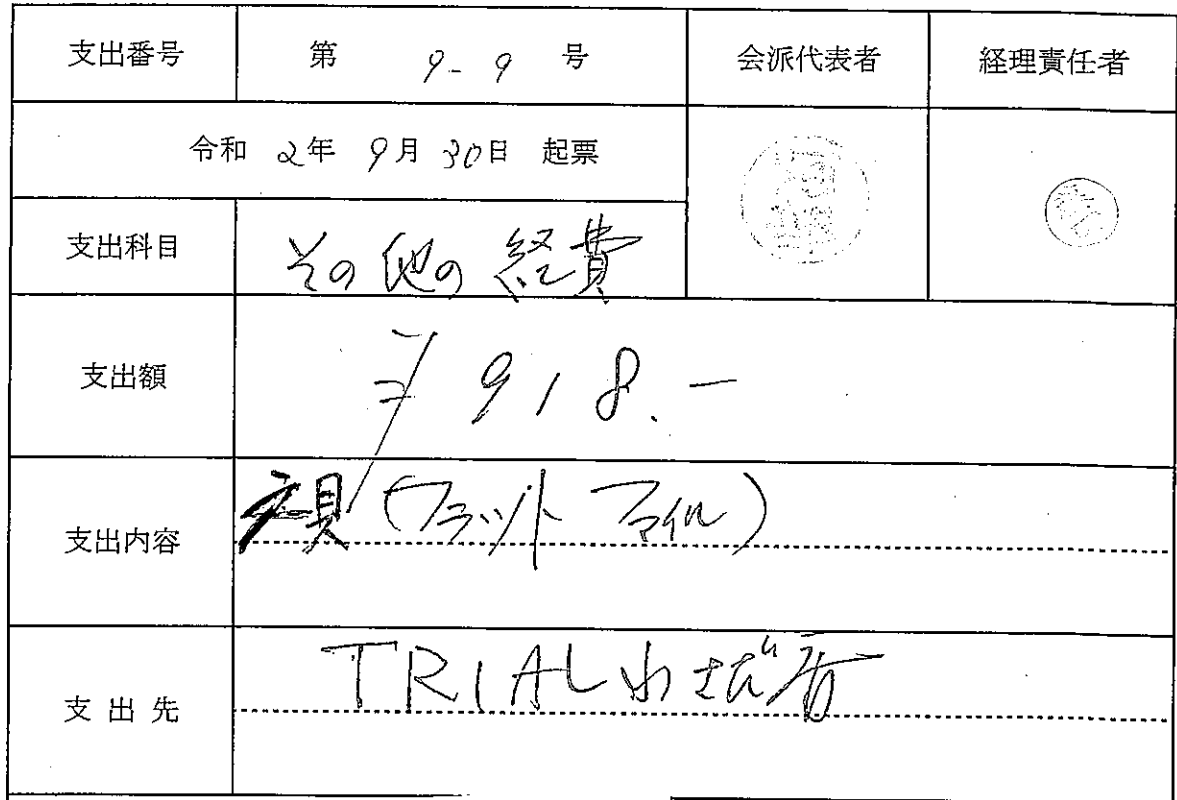 支出番号 第 9-9 号 会派代表者 経理責任者
令和 2年 9月 30日 起票
支出科目 その他の経費
支出額 ¥918.-
支出内容 (フラットファイル)
支出先 TRIAL